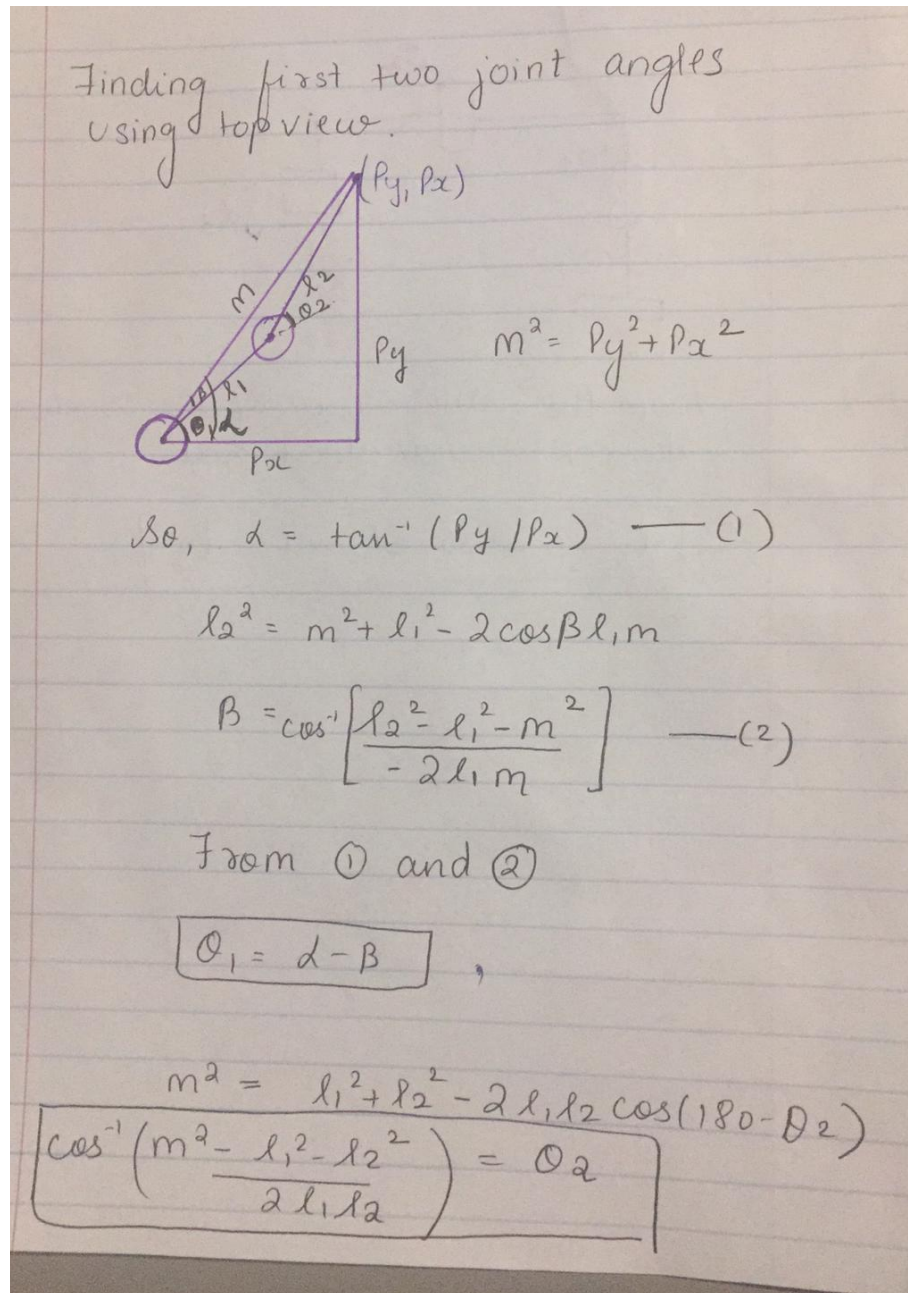 Finding first two joint angles
using top view.
(Py, Px)
m
l2
θ2
Py
m² = Py² + Px²
β
l1
θ1
α
Px
So, α = tan⁻¹ (Py / Px) — (1)
l2² = m² + l1² - 2cosβ l1 m
β = cos⁻¹ [ l2² - l1² - m² / - 2 l1 m ] — (2)
From ① and ②
θ1 = α - β ,
m² = l1² + l2² - 2 l1 l2 cos(180 - θ2)
cos⁻¹ ( m² - l1² - l2² / 2 l1 l2 ) = θ2